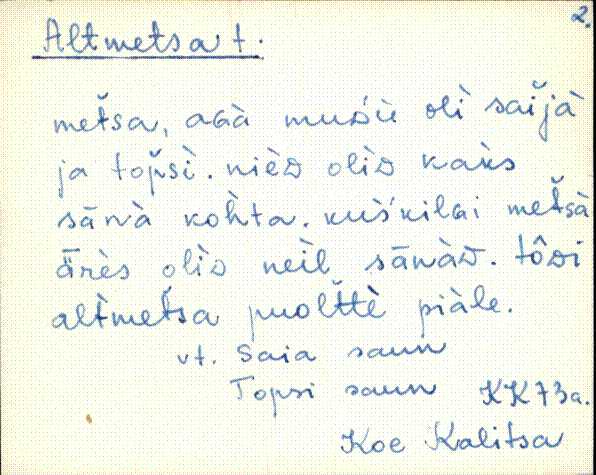 2.
Altmetsa t.
metšsa, aGà muDìe olì saĭjà
ja topšì. nièD olìD kaks
sāwà kohta. kuskilGi metšsà
ǟrès olìD neil sāwàD. tôDi
altmetšsa puolttè piàle.
vt. Saia saun
Topsi saun KK73a.
Koe Kalitsa